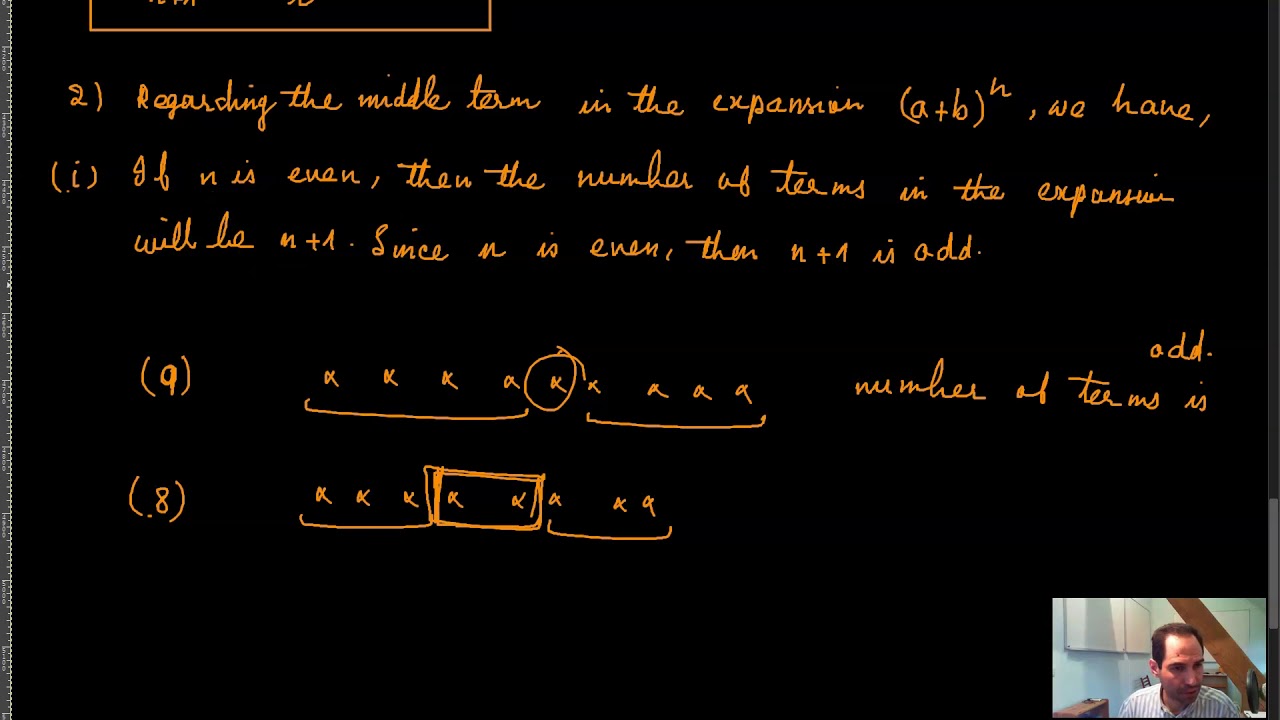 2) Regarding the middle term in the expansion (a+b)^n, we have,
(i) If n is even, then the number of terms in the expansion
will be n+1. Since n is even, then n+1 is odd.
odd.
(9) x x x x x x x x x number of terms is
(8) x x x x x x x x